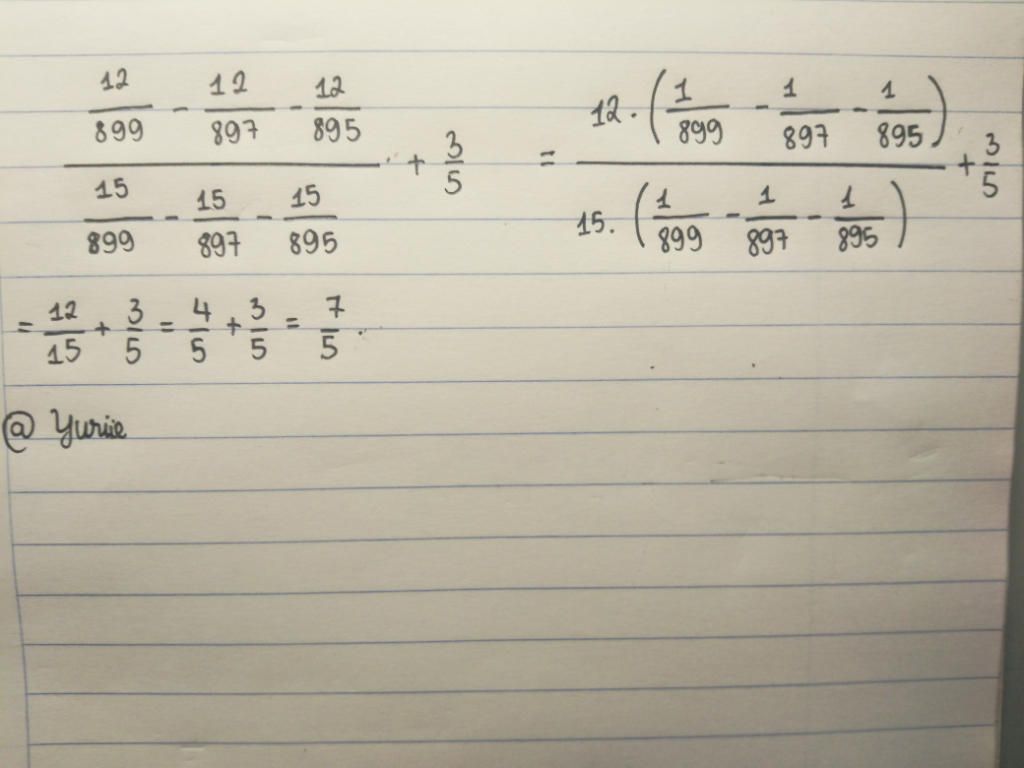 12/899 - 12/897 - 12/895 / 15/899 - 15/897 - 15/895 + 3/5 = 12.(1/899 - 1/897 - 1/895) / 15.(1/899 - 1/897 - 1/895) + 3/5
= 12/15 + 3/5 = 4/5 + 3/5 = 7/5.
@ Yuriie